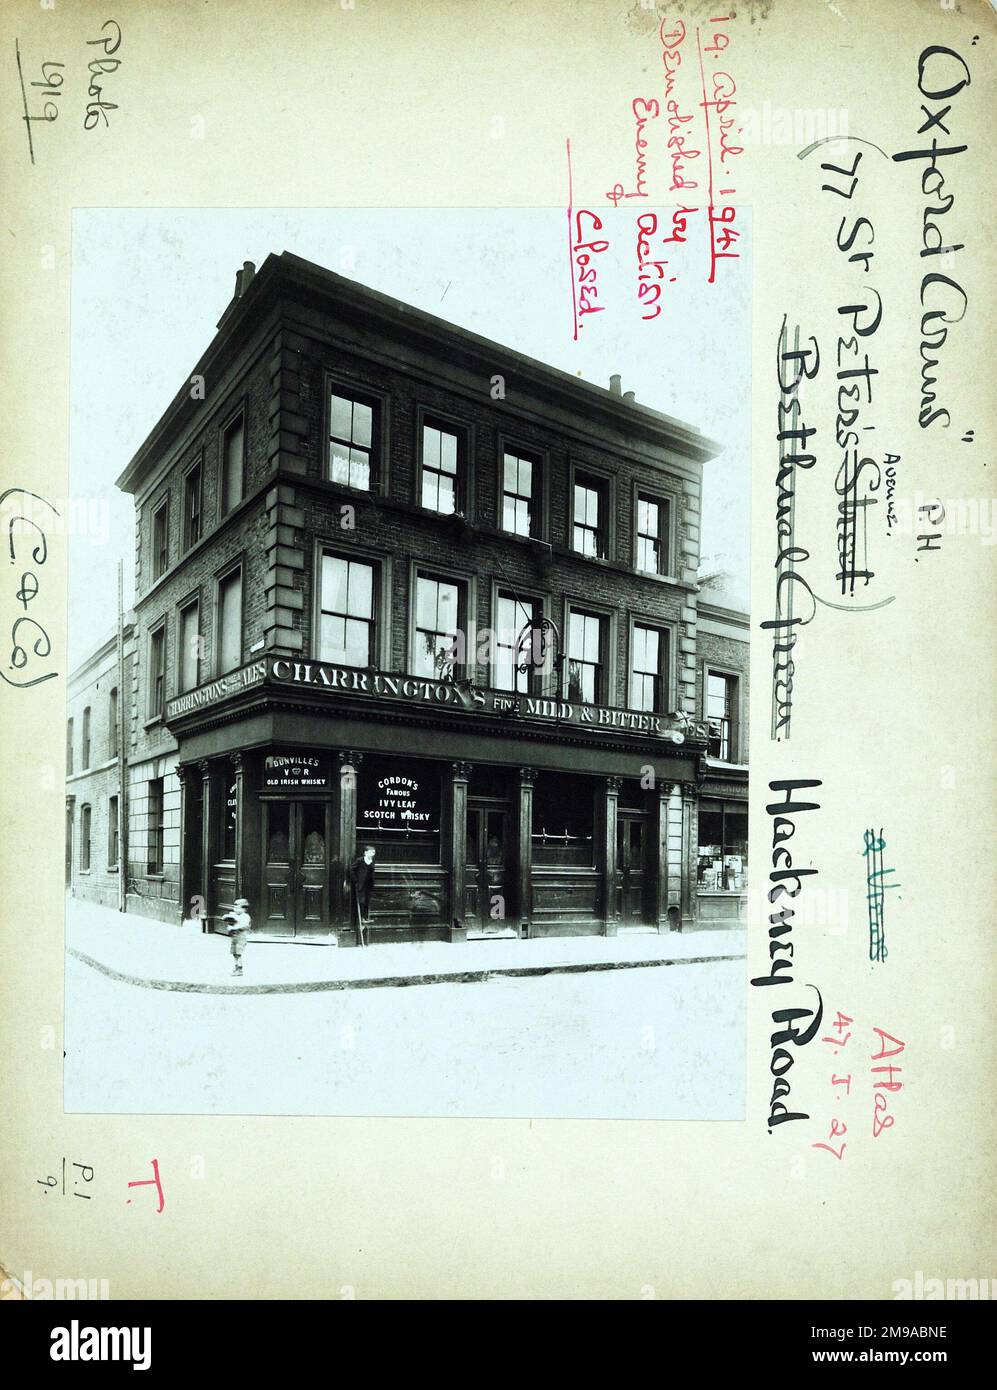 "Oxford Arms" P.H.
(77 St Peter's Street Avenue.)
Bethnal Green. Hackney Road.
19. April. 1941
Demolished by
Enemy Action
&
Closed.
Photo
1919
(C. & Co.)
2 Vines.
Atlas
47. J. 27
T.
P.1
9.
CHARRINGTON'S ALES
CHARRINGTON'S FINE MILD & BITTER
DUNVILLES
V R
OLD IRISH WHISKY
GORDON'S
FAMOUS
IVY LEAF
SCOTCH WHISKY
alamy
Image ID: 2M9ABNE
www.alamy.com